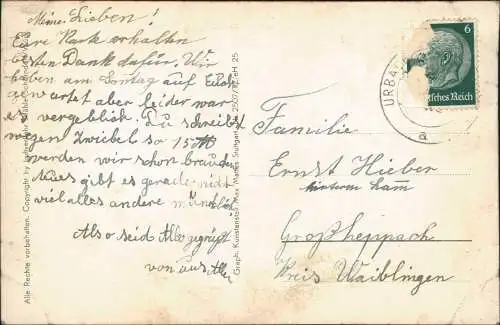 Meine Lieben!
Eure Karte erhalten
besten Dank dafür. Wir
haben am Sontag auf
gewartet aber leider war
es vergeblich. Du schreibst
wegen Zwiebel so 15 ℔
werden wir schon brauchen
Neues gibt es gerade nicht
viel alles andere mündlich
Also seid Alle gegrüßt
von uns Allen
Alle Rechte vorbehalten. Copyright by
Graph. Kunstanstalt Stuttgart
URBA
6
Deutsches Reich
a
Familie
Ernst Hieber
hinterm Lam
Großheppach
Kreis Waiblingen